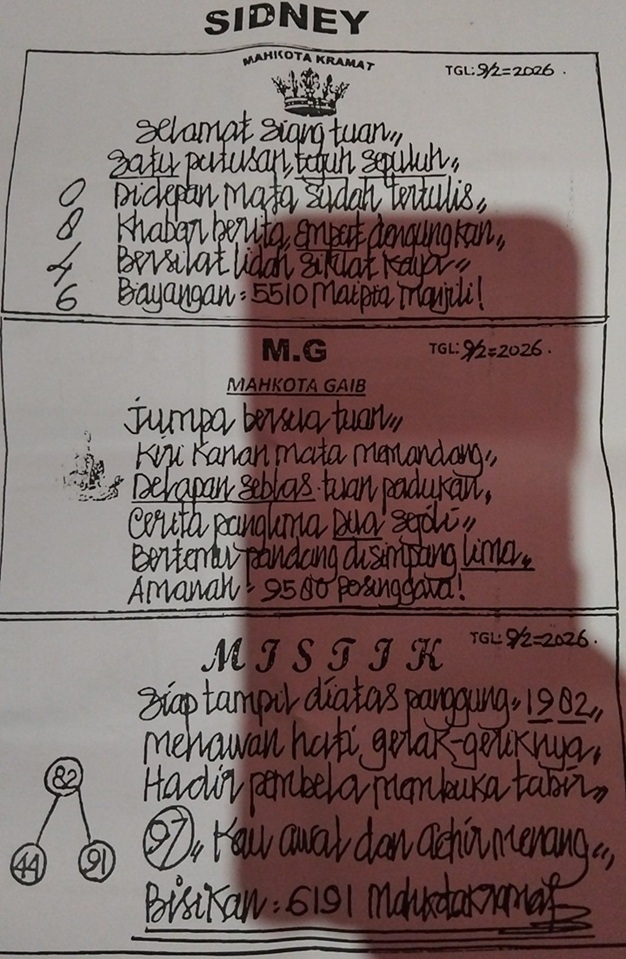 SIDNEY
MAHKOTA KRAMAT
TGL: 9/2=2026.
Selamat Siang tuan,,
Satu putusan, tujuh sepuluh,,
0 Didepan mata sudah tertulis,,
8 Khabar berita, empat dengungkan,,
4 Bersilat lidah
6 Bayangan = 5510
M.G
TGL: 9/2=2026.
MAHKOTA GAIB
Jumpa bersua tuan,,
Kiri Kanan mata memandang,,
Delapan seblas tuan padukan,
Cerita panglima Dua sejoli,,
Bertemu pandang disimpang lima,,
Amanah =
MISTIK
TGL: 9/2=2026.
Siap tampil diatas panggung,, 1982,,
Menawan hati, gerak-geriknya,
Hadir pembela membuka tabir,,
82
97,, Kau awal dan achir menang,,
44 91
Bisikan : 6191 Mahkotakramat